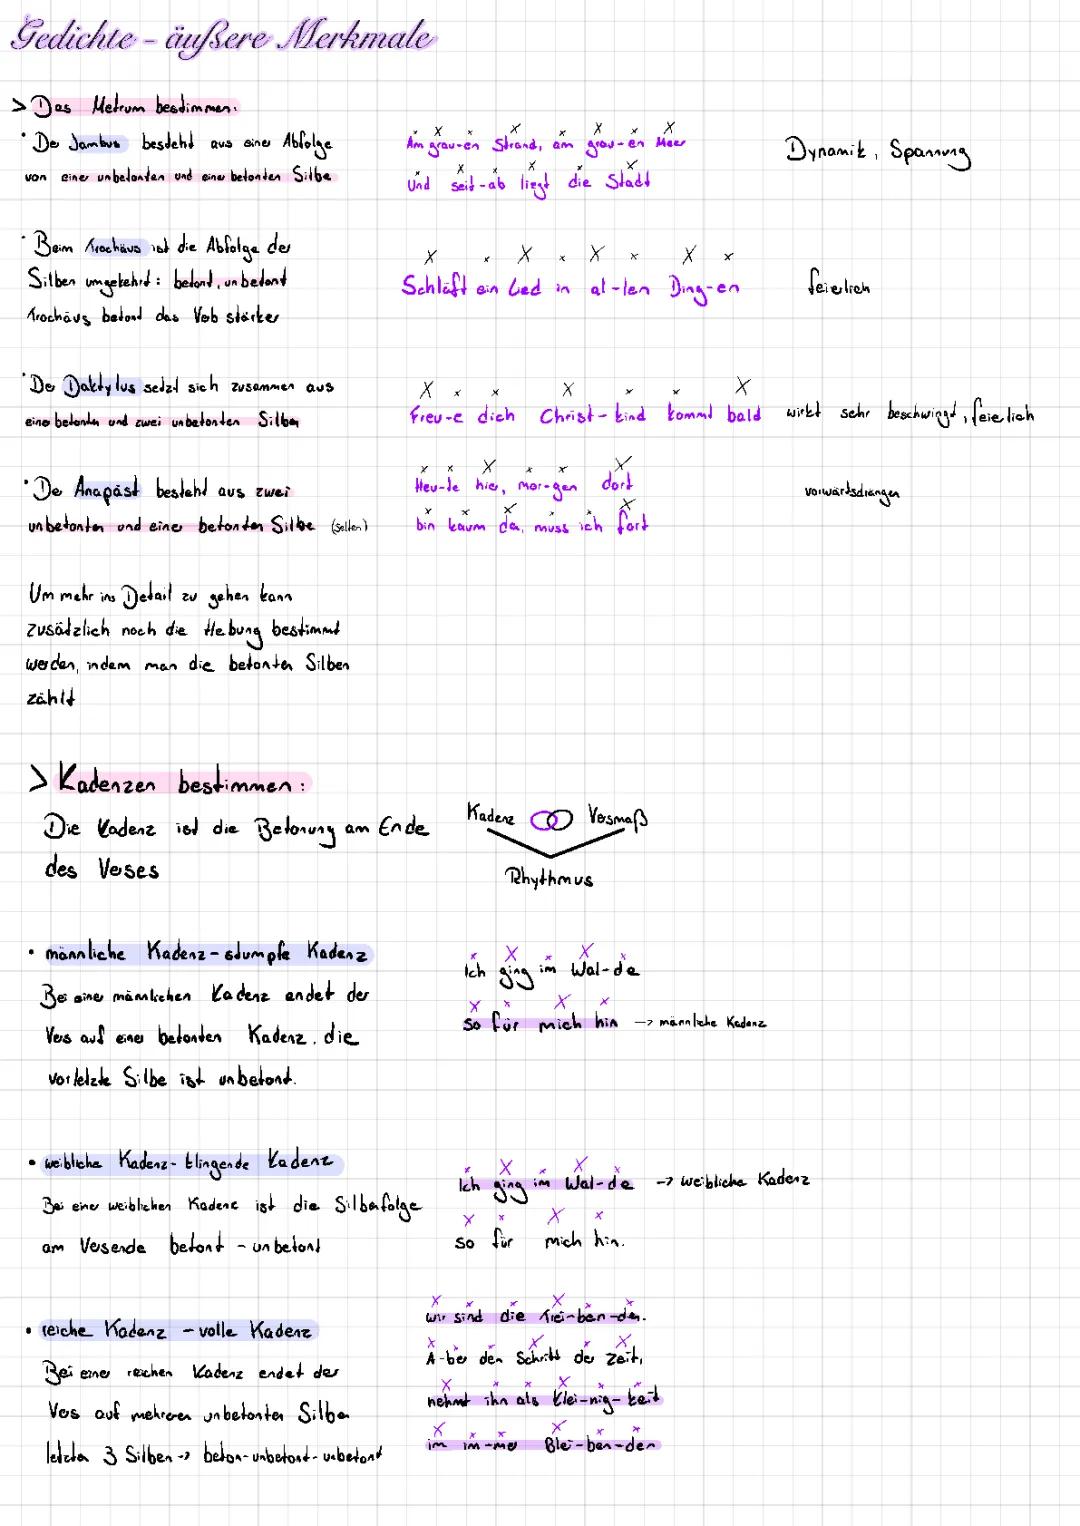 Gedichte - äußere Merkmale
> Das Metrum bestimmen:
• Der Jambus besteht aus einer Abfolge
von einer unbetonten und einer betonten Silbe
Am grau-en Strand, am grau-en Meer
Und seit-ab liegt die Stadt
Dynamik, Spannung
• Beim Trochäus ist die Abfolge der
Silben umgekehrt: betont, unbetont
Trochäus betont das Verb stärker
Schläft ein Lied in al-len Ding-en
feierlich
• Der Daktylus setzt sich zusammen aus
einer betonten und zwei unbetonten Silben
Freu-e dich Christ-kind kommt bald
wirkt sehr beschwingt, feierlich
• Der Anapäst besteht aus zwei
unbetonten und einer betonten Silbe (selten)
Heu-te hier, mor-gen dort
bin kaum da, muss ich fort
vorwärtsdrängen
Um mehr ins Detail zu gehen kann
zusätzlich noch die Hebung bestimmt
werden, indem man die betonten Silben
zählt
> Kadenzen bestimmen:
Die Kadenz ist die Betonung am Ende
des Verses
Kadenz Versmaß
Rhythmus
• männliche Kadenz - stumpfe Kadenz
Bei einer männlichen Kadenz endet der
Vers auf einer betonten Kadenz. die
vorletzte Silbe ist unbetont.
Ich ging im Wal-de
so für mich hin -> männliche Kadenz
• weibliche Kadenz - klingende Kadenz
Bei einer weiblichen Kadenz ist die Silbenfolge
am Versende betont - unbetont
Ich ging im Wal-de -> weibliche Kadenz
so für mich hin.
• reiche Kadenz - volle Kadenz
Bei einer reichen Kadenz endet der
Vers auf mehreren unbetonten Silben
letzten 3 Silben -> beton-unbetont-unbetont
wir sind die Trei-ben-den.
A-ber den Schritt der Zeit,
nehmt ihn als Klei-nig-keit
im im-mer Blei-ben-den